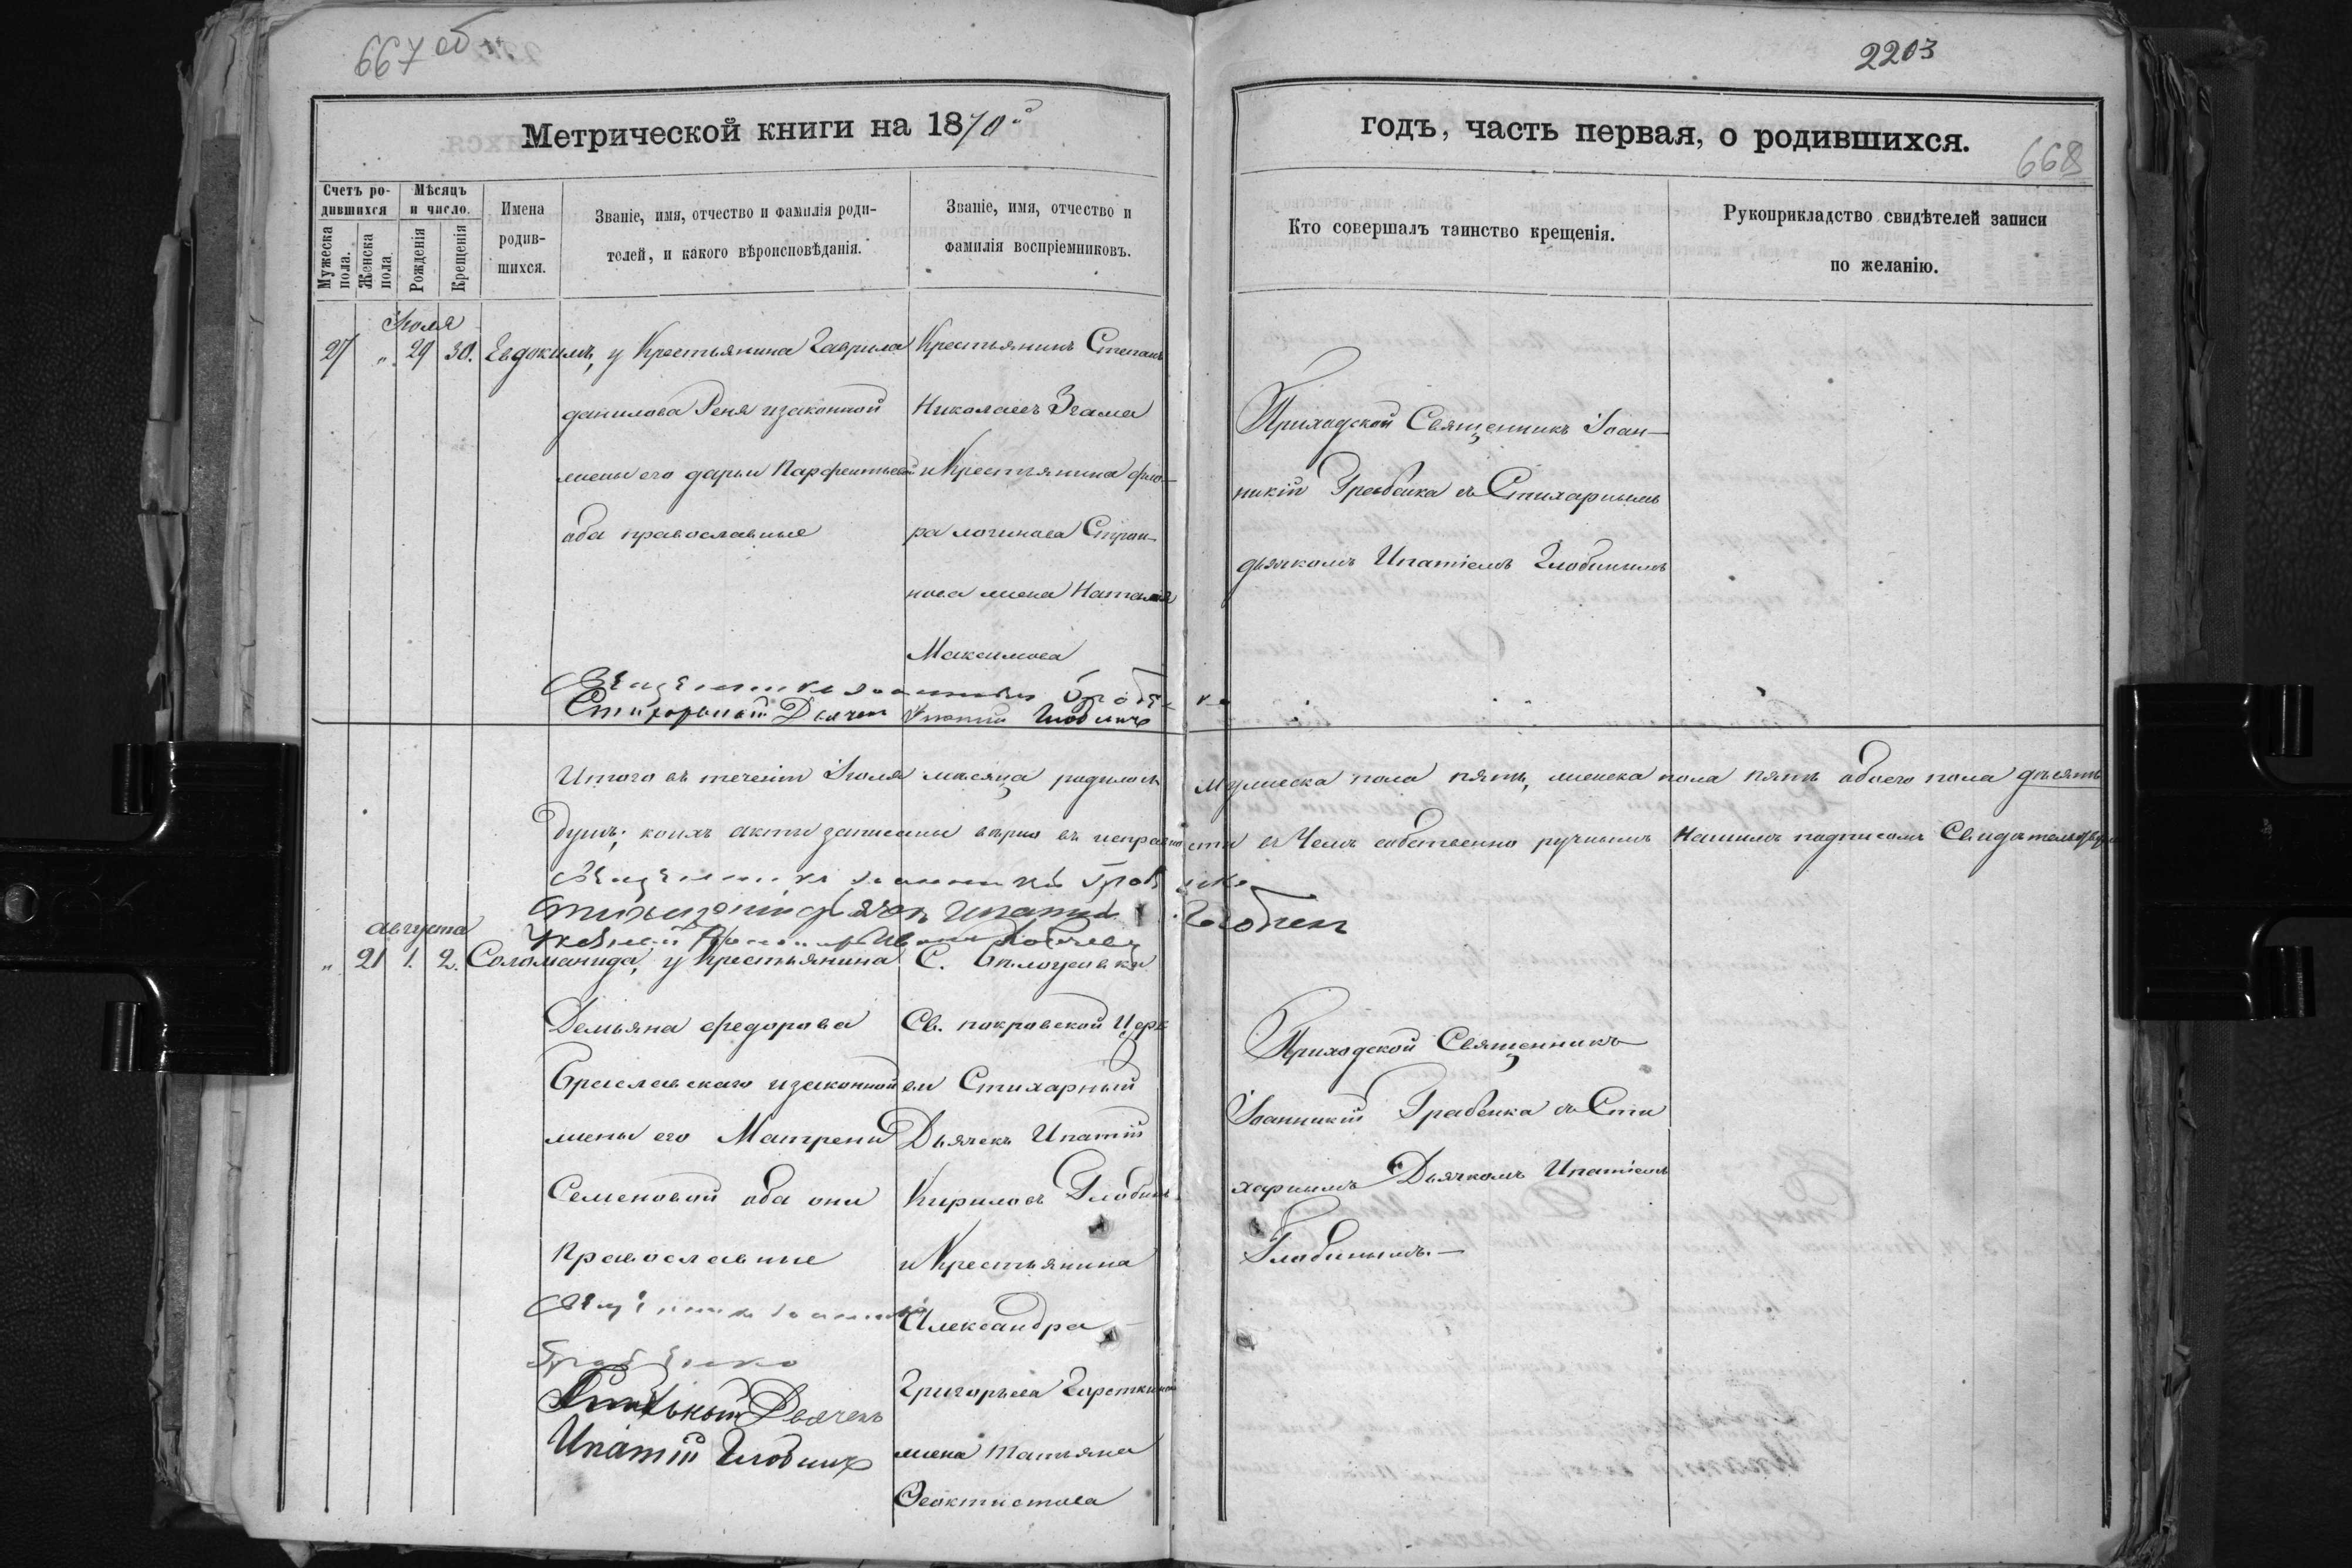 667 об
2203
668
Метрической книги на 1870й
годъ, часть первая, о родившихся.
Счетъ ро-
дившихся
Мѣсяцъ
и число.
Мужеска
пола.
Женска
пола.
Рожденія
Крещенія
Имена
родив-
шихся.
Званіе, имя, отчество и фамилія роди-
телей, и какого вѣроисповѣданія.
Званіе, имя, отчество и
фамилія воспріемниковъ.
Кто совершалъ таинство крещенія.
Рукоприкладство свидѣтелей записи
по желанію.
Іюля
27 " 29 30. Евдокимъ,
у Крестьянина Гаврила
данилова Реня изаконной
жены его дарьи Парфентьевой
оба православные
Крестьянинъ Степанъ
Николаевъ
и Крестьянина фио-
ра логинова Строи-
нова жена Наталия
Максимова
Приходской Священникъ Іоан-
никій Гребенка съ Стихарнымъ
дьячкомъ Ипатіемъ Глобинымъ
Стихарный Дьячек Ипатій Глобинъ
Итого въ теченіи Іюля мѣсяца родилось мужеска пола пять, женска пола пять обоего пола дѣсять
душъ; коихъ акты записаны вѣрно въ исправности въ Чемъ собственно ручнымъ Нашимъ подписомъ
Августа
" 21 1. 2. Соломанида,
у Крестьянина
Демьяна федорова
Браславскаго изаконной
жены его Матрены
Семеновой оба они
Православные
С. Бѣлоусовки
Св. покровской Церк
ви Стихарный
Дьячекъ Ипатій
Кириловъ Глобинъ
и Крестьянина
Александра
Григорьева
жена Татьяна
Феоктистова
Приходской Священникъ
Іоанникій Гребенка съ Сти
харнымъ Дьячкомъ Ипатіемъ
Глобинымъ.—
Дьячекъ
Ипатій Глобинъ